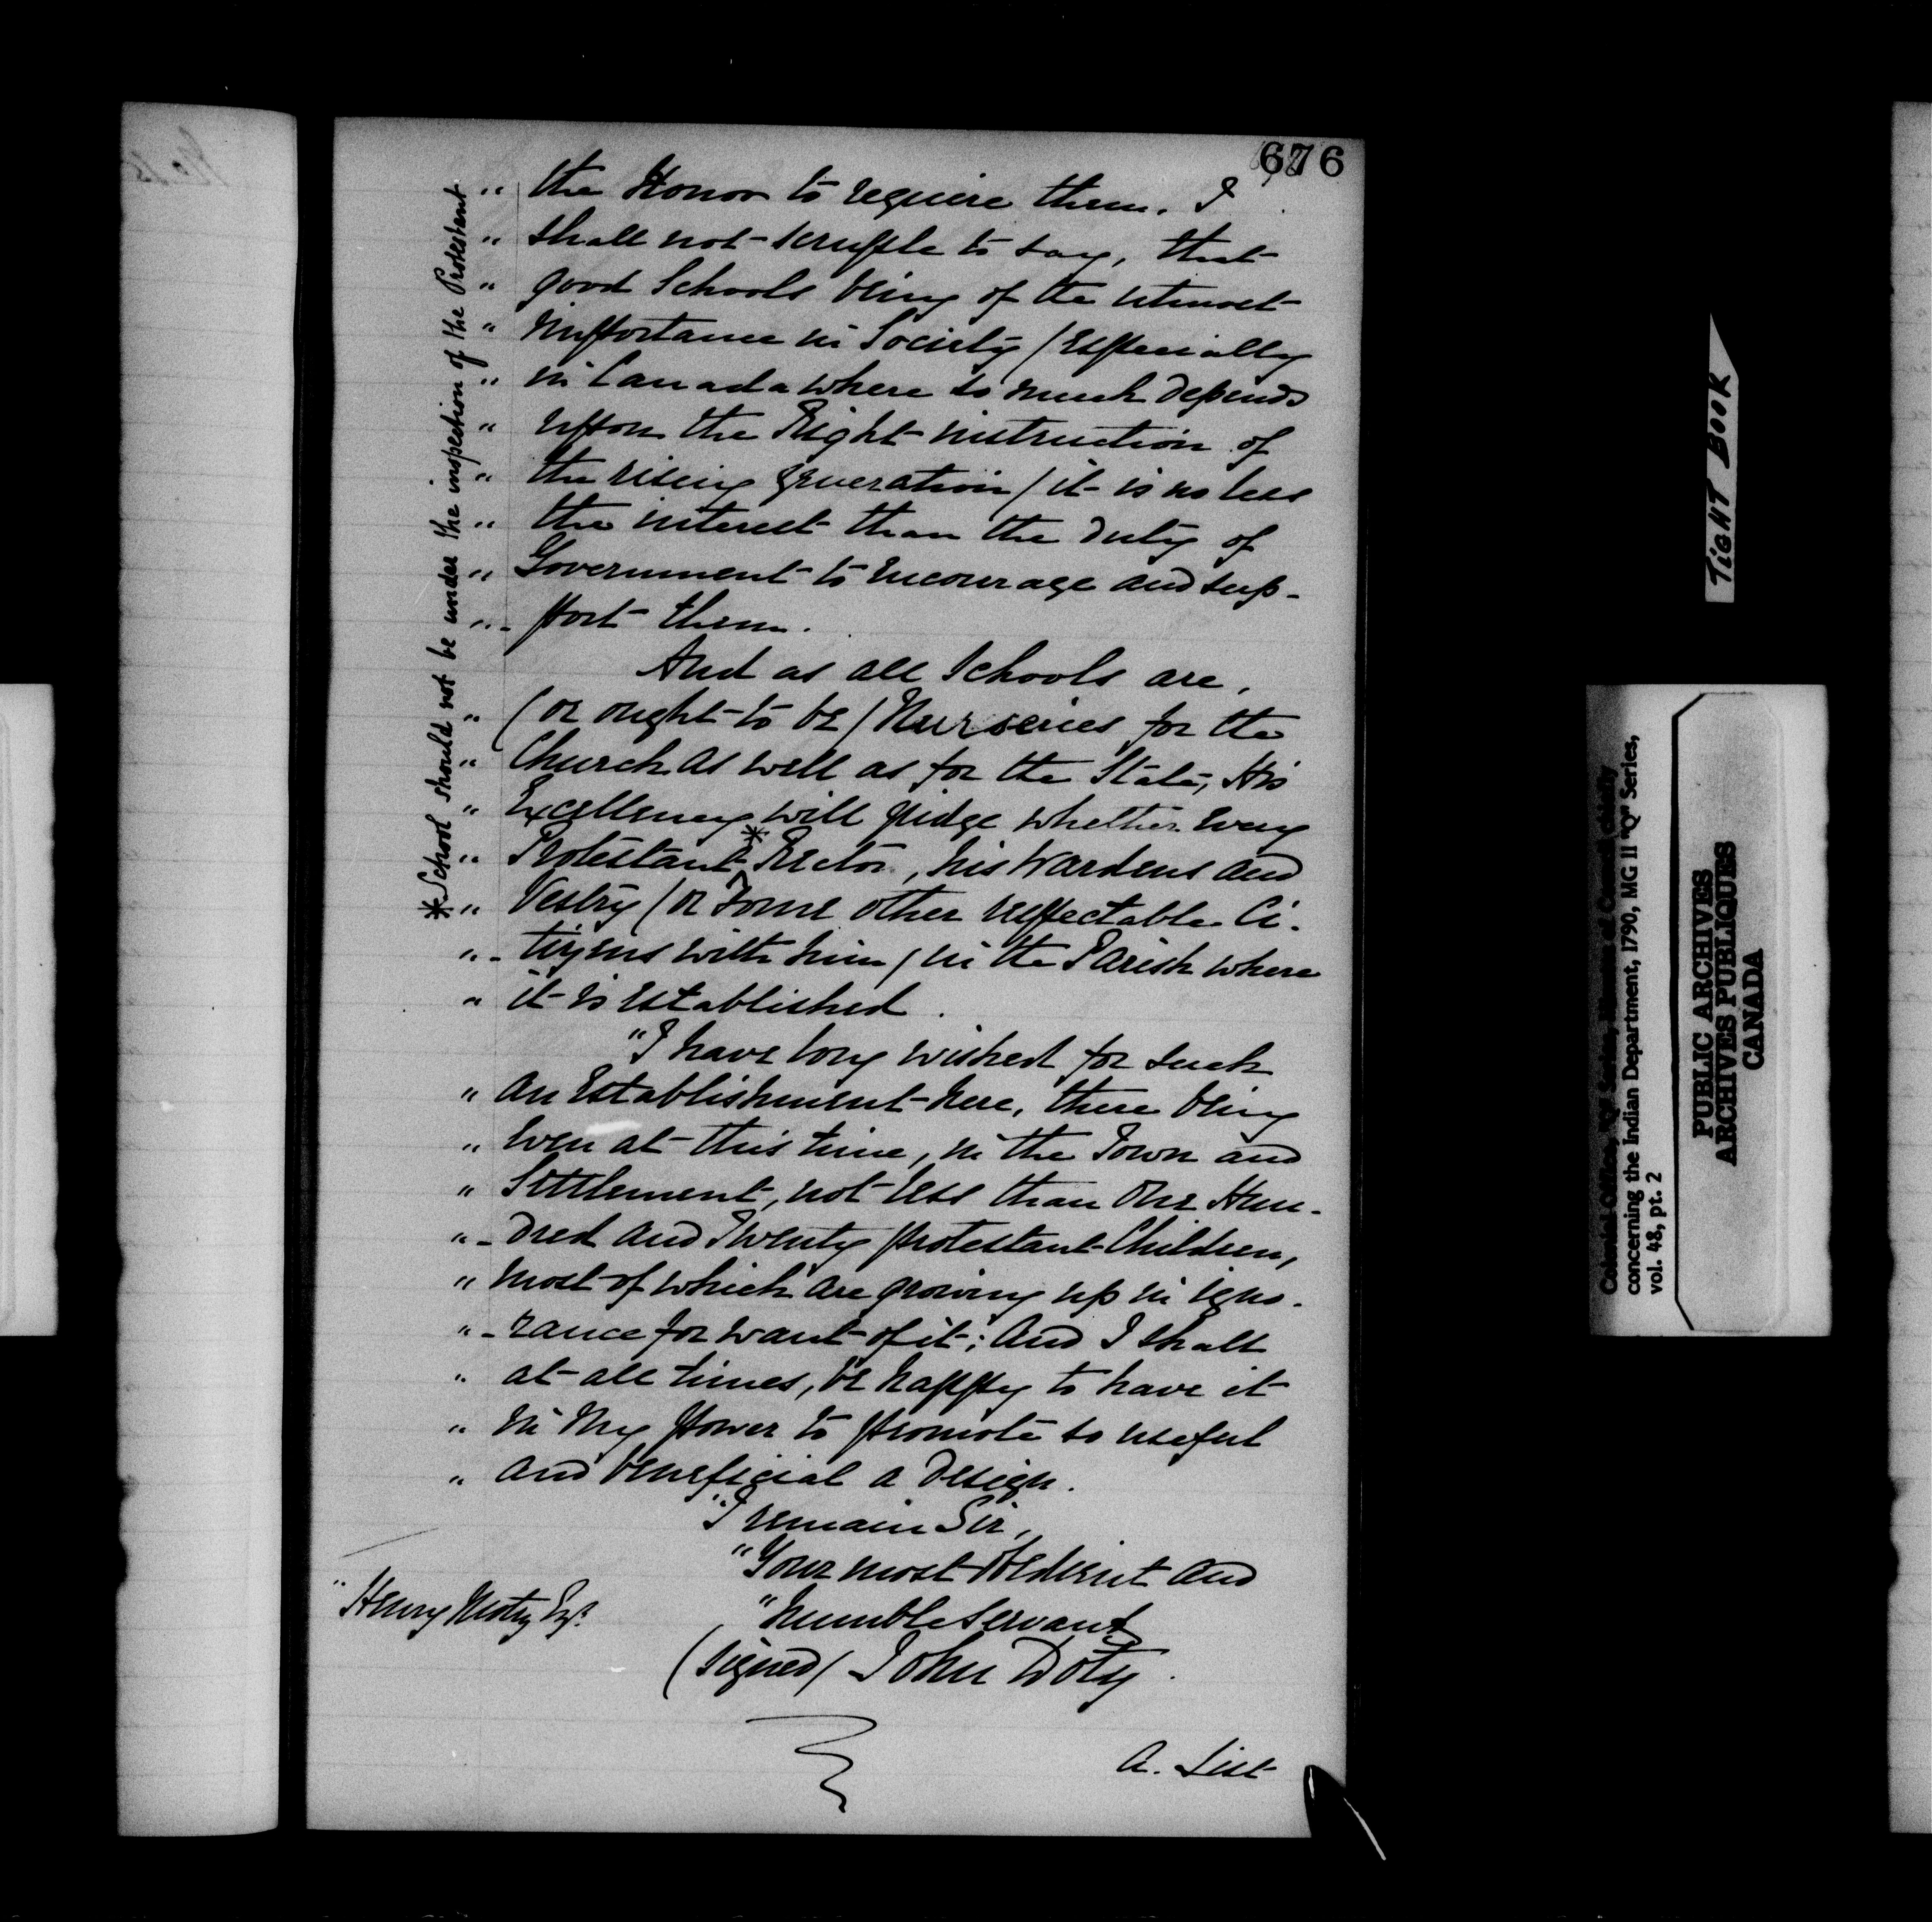 676
„ the Honor to require them. I
„ shall not scruple to say, that
„ good Schools being of the utmost
„ importance in Society (Especially
„ in Canada where so much depends
„ upon the Right instruction of
„ the rising generation) it is no less
„ the interest than the duty of
„ Government to encourage and sup-
„ - port them.
And as all Schools are,
„ (or ought to be) Nurseries for the
„ Church as well as for the State, His
„ Excellency will judge whether every
„ Protestant * Rector, his Wardens and
„ Vestry (or some other respectable Ci-
„ - tizens with him) in the Parish where
„ it is established.
"I have long wished for such
„ an Establishment here, there being
„ even at this time, in the Town and
„ Settlement, not less than One Hun-
„ - dred and Twenty protestant Children,
„ most of which are growing up in igno-
„ - rance for want of it; And I shall
„ at all times, be happy to have it
„ in my power to promote so useful
„ and beneficial a design.
"I remain Sir,
"Your most obedient and
"humble servant
"Henry Motz Esqr.
(signed) John Doty.
A. List
* School should not be under the inspection of the Protestant
TIGHT BOOK
concerning the Indian Department, 1790, MG 11 "Q" Series,
vol. 48, pt. 2
PUBLIC ARCHIVES
ARCHIVES PUBLIQUES
CANADA